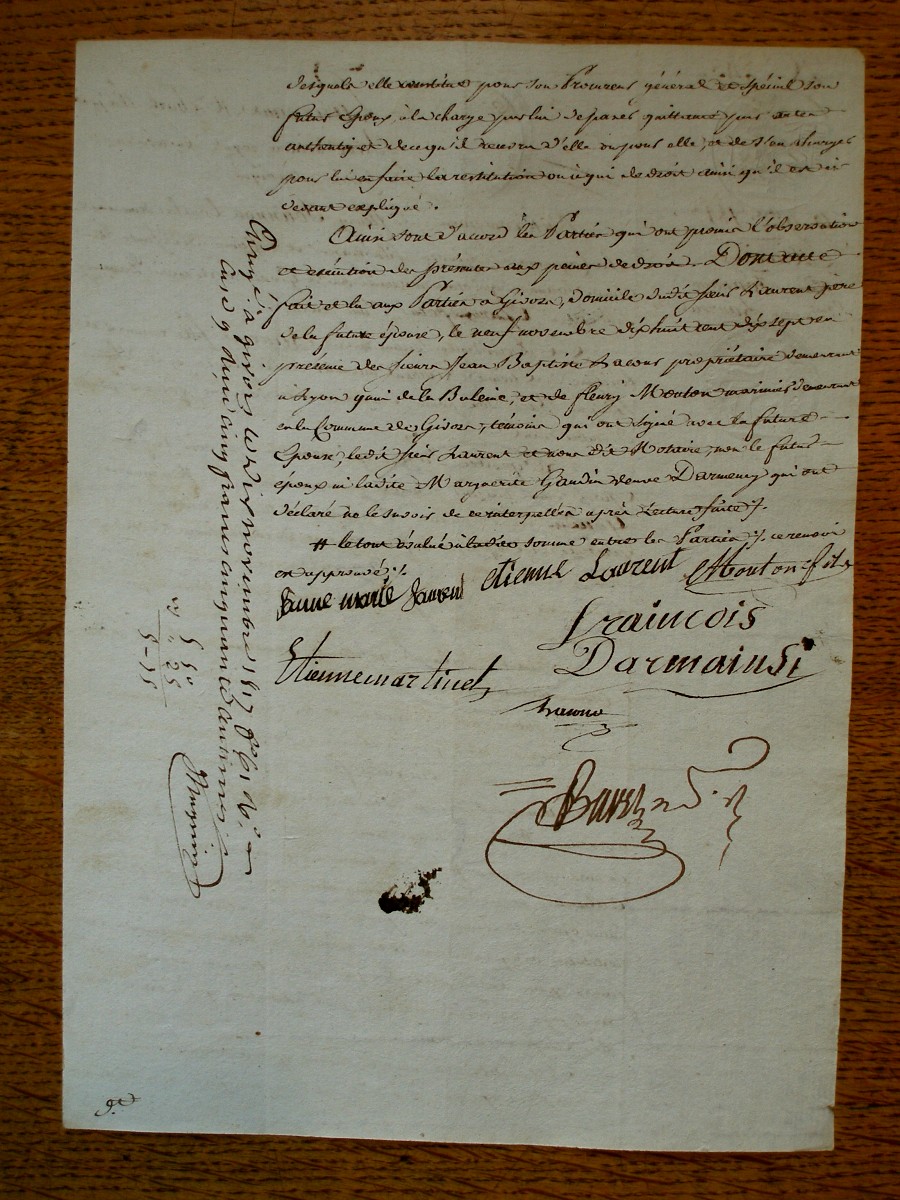 desquels elle constitue pour son Procureur général et spécial son
futur Epoux, à la charge par lui de passer quittance par acte
authentique de ce qu'il recevra d'elle ou pour elle, et de s'en charger
pour lui en faire la restitution ou à qui de droit ainsi qu'il est ci
devant expliqué.
Ainsi sont d'accord les Parties qui ont promis l'observation
et exécution des présentes aux peines de droit. Dont acte
fait et lu aux Parties à Givors, domicile dudit sieur Laurent père
de la future épouse, le neuf novembre dix huit cent dix sept en
présence des sieurs Jean Baptiste Lacour propriétaire demeurant
à Lyon quai de la Baleine, et de fleury Mouton marinier demeurant
en la Commune de Givors, témoins qui ont signé avec la future
Epouse, ledit sieur Laurent et nous dit Notaire, non le futur
époux ni ladite Marguerite Gaudin veuve Darmency qui ont
déclaré ne le savoir de ce interpellés après Lecture faite ./.
# le tout évalué à ladite somme entre les Parties ./. ce renvoi
est approuvé ./.
Jeanne marie Laurent etienne Laurent Mouton fils
fraincois
Darmainsi
Etienne martinet
Enreg.é à givors le dix novembre 1817 f.o 61
case 9 cinq francs cinquante centimes
5 50
55